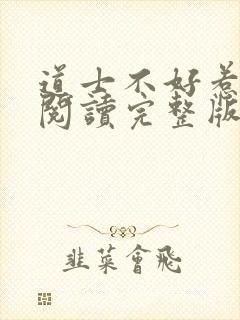 道士不好惹
閱讀完整版
韭菜會飛